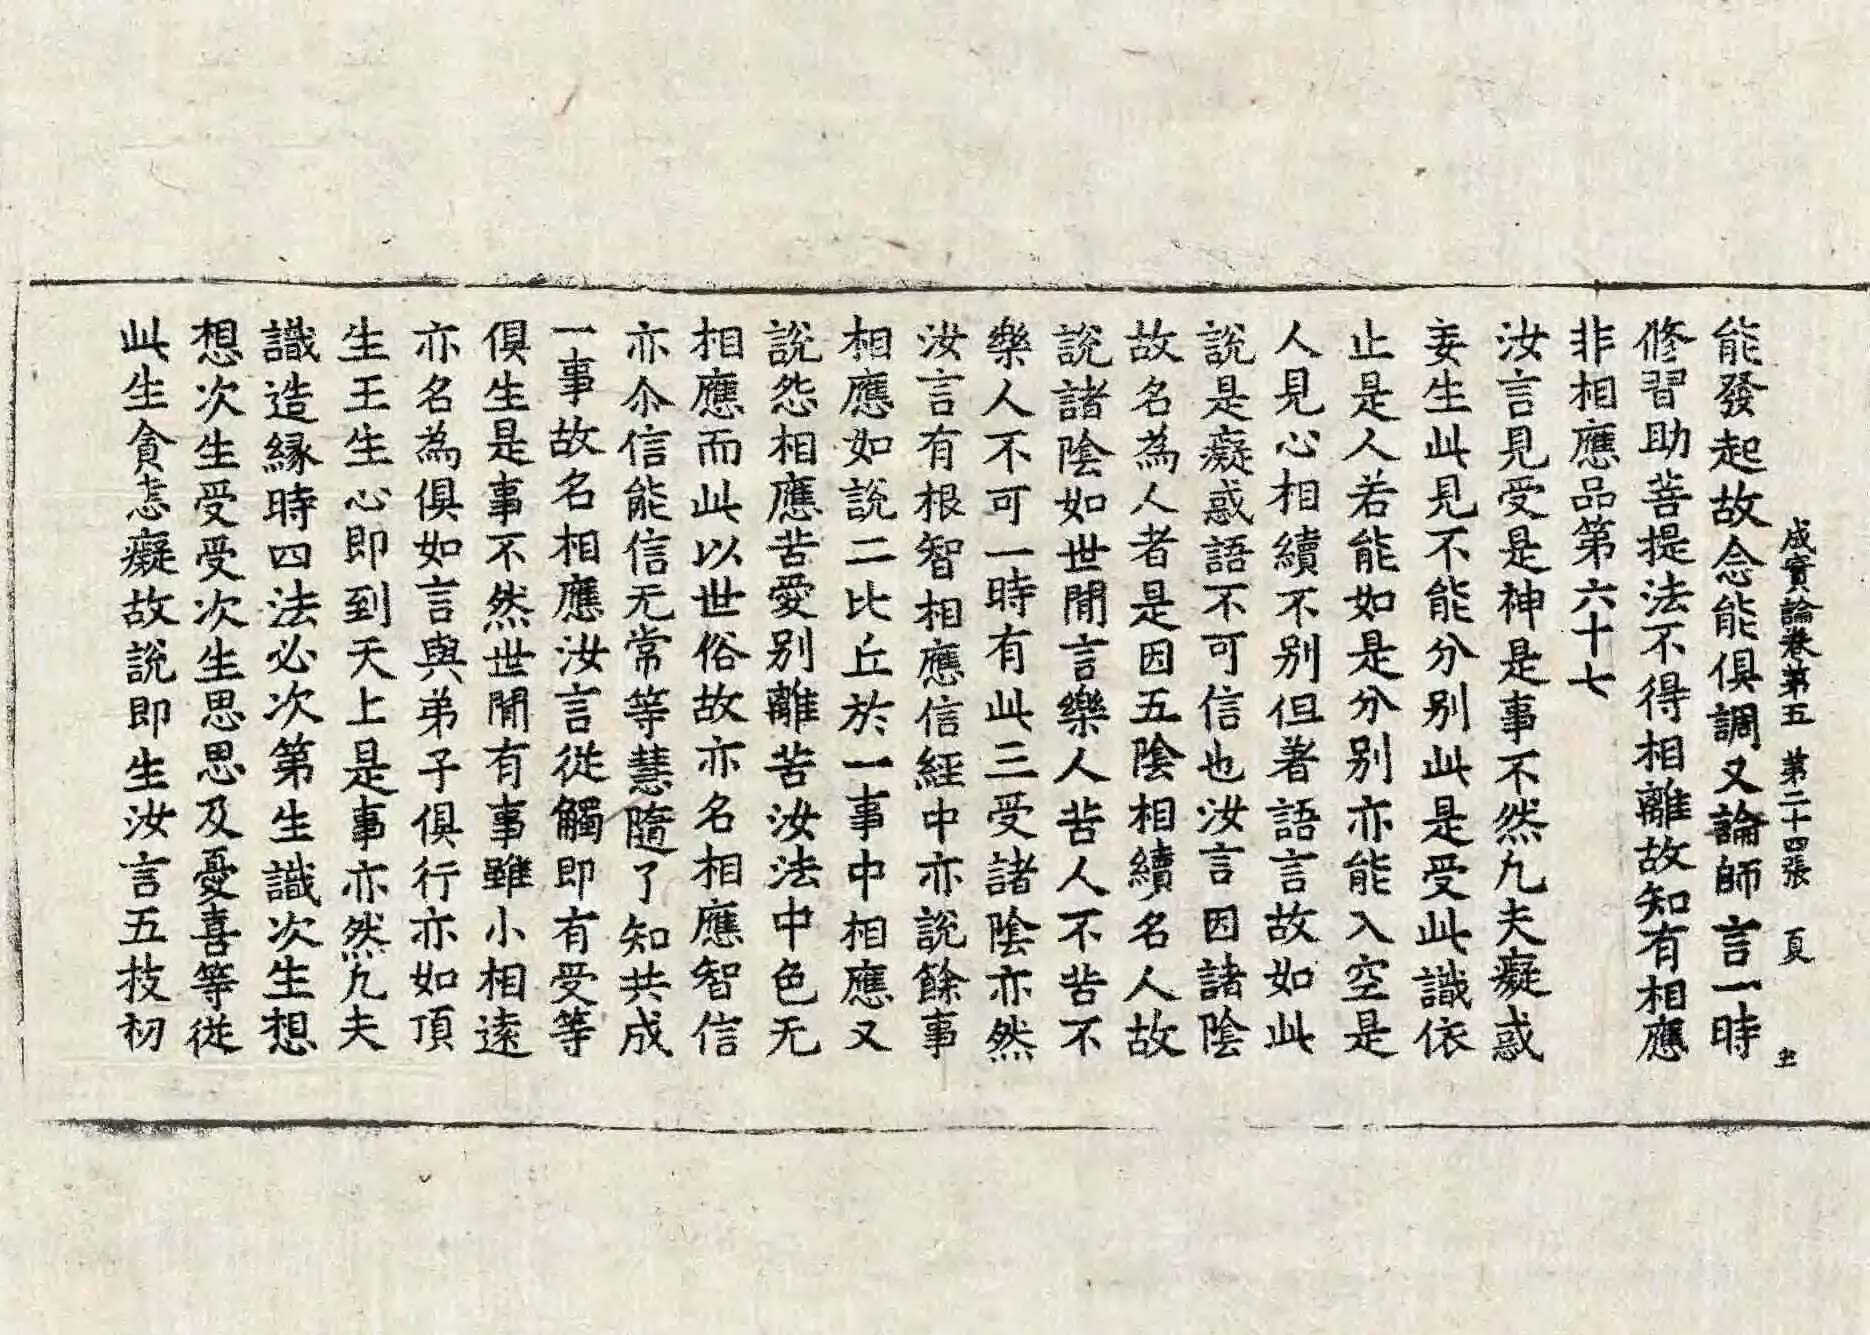 成實論卷第五 第二十四張 頁
能發起故念能俱調又論師言一時
修習助菩提法不得相離故知有相應
非相應品第六十七
汝言見受是神是事不然凢夫癡惑
妄生此見不能分別此是受此識依
止是人若能如是分別亦能入空是
人見心相續不別但著語言故如此
說是癡惑語不可信也汝言因諸陰
故名為人者是因五陰相續名人故
說諸陰如世閒言樂人苦人不苦不
樂人不可一時有此三受諸陰亦然
汝言有根智相應信經中亦說餘事
相應如說二比丘於一事中相應又
說怨相應苦愛別離苦汝法中色无
相應而此以世俗故亦名相應智信
亦尒信能信无常等慧隨了知共成
一事故名相應汝言從觸即有受等
俱生是事不然世閒有事雖小相遠
亦名為俱如言與弟子俱行亦如頂
生王生心即到天上是事亦然凢夫
識造緣時四法必次第生識次生想
想次生受受次生思思及憂喜等從
此生貪恚癡故說即生汝言五技初